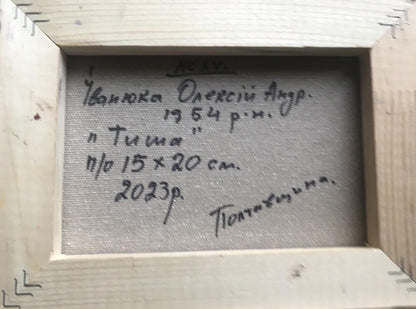 НСХУ.
Іванюка Олексій Андр.
1954 р.н.
„Тиша"
п/о 15 х 20 см.
2023р.
Полтавщина.